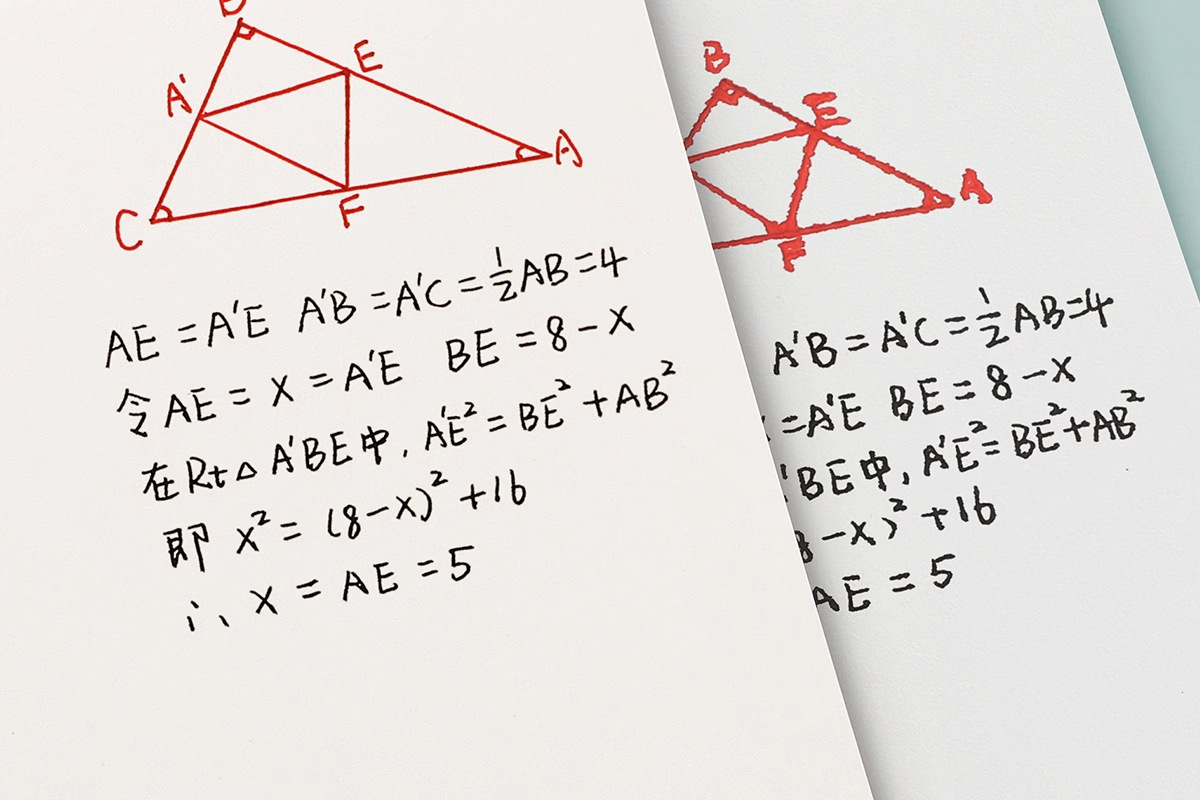 E
A'
A
C
F
AE = A'E A'B = A'C = 1/2 AB = 4
令 AE = x = A'E BE = 8 - x
在 Rt△ A'BE中, A'E² = BE² + AB²
即 x² = (8-x)² + 16
∴ x = AE = 5
B
E
A
F
A'B = A'C = 1/2 AB = 4
= A'E BE = 8 - x
'BE中, A'E² = BE² + AB²
8-x)² + 16
AE = 5